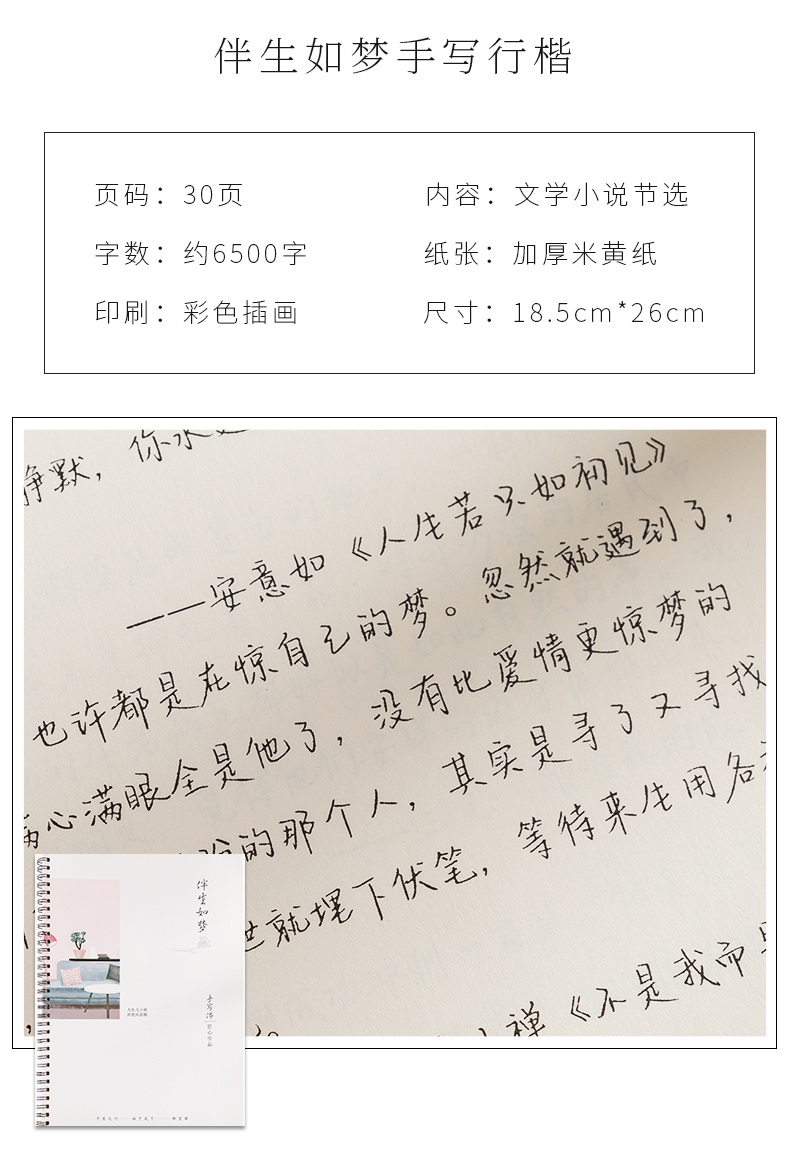 伴生如梦手写行楷
页码：30页
内容：文学小说节选
字数：约6500字
纸张：加厚米黄纸
印刷：彩色插画
尺寸：18.5cm*26cm
静默，你永是
——安意如《人生若只如初见》
也许都是在惊自己的梦。忽然就遇到了，
满心满眼全是他了，没有比爱情更惊梦的
的那个人，其实是寻了又寻找
世就埋下伏笔，等待来生用各
禅《不是我而是
伴生如梦
手写体
匠心作品